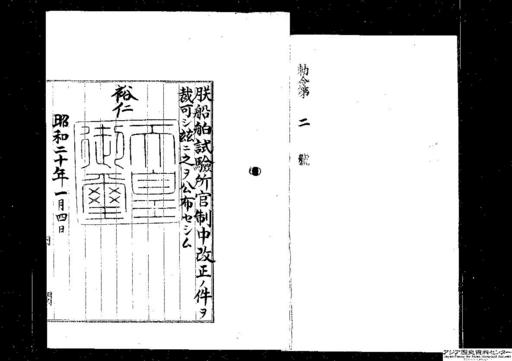 勅令第二號
朕船舶試驗所官制中改正ノ件ヲ
裁可シ玆ニ之ヲ公布セシム
裕仁
天皇御璽
昭和二十年一月四日
アジア歴史資料センター